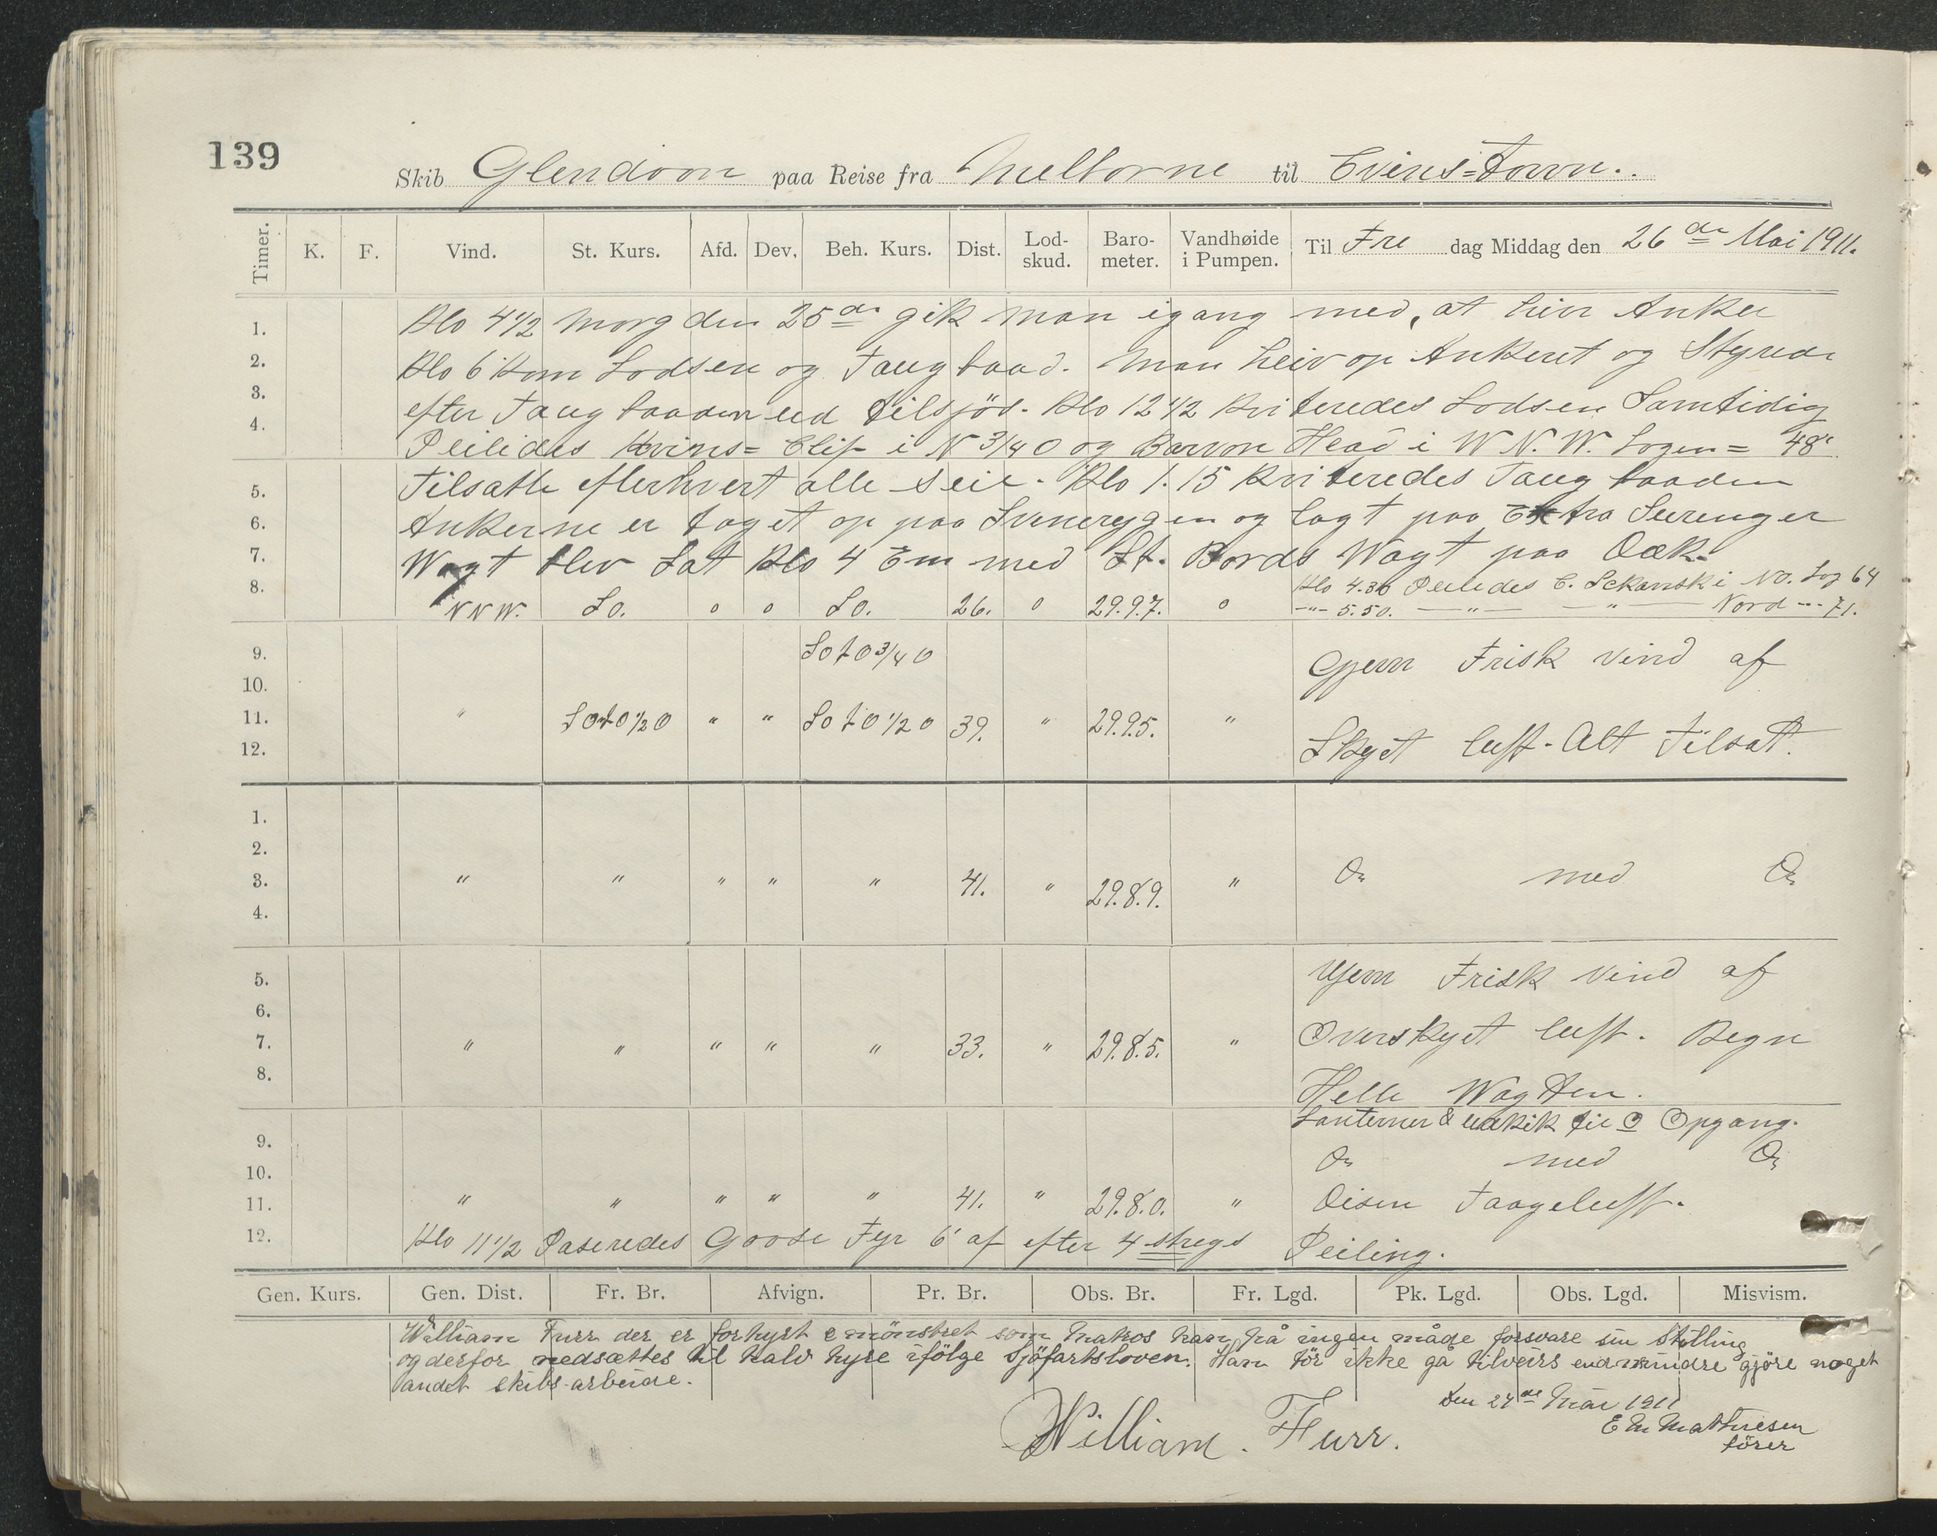 139
Skib Glendoon paa Reise fra Melborne til Qvins=Town.
Timer. K. F. Vind. St. Kurs. Afd. Dev. Beh. Kurs. Dist. Lod-skud. Baro-meter. Vandhøide i Pumpen. Til Fre dag Middag den 26de Mai 1911.
1. Klo 4½ Morg den 25de gik man igang med, at hive Anker
2. Klo 6 kom Lodsen og Taugbaad. Man heiv op Ankeret og Styrede
3. efter Taugbaaden ud tilsjös. Klo 12½ kviteredes Lodsen Samtidig
4. Peiledes Kvins= Clif i N ¾ O og Barvon Head i W N.W. Logen = 48'
5. Tilsatte efterhvert alle Seil. Klo 1.15 kviteredes Taugbaaden
6. Ankerne er taget op paa Svineryggen og lagt paa Extra Surringer
7. Wagt blev Sat Klo 4 Em med St. Bords Wagt paa Dæk.
8. Klo 4.30 Peiledes C. Schansk i NO. Log 64
NNW. So. o o So. 26. o 29.9.7. o -"- 5.50. -"- -"- Nord --- 71.
9. So t O ¾ O Gjevn Frisk Vind af
10.
11. " So t O ½ O " " So t O ½ O 39. " 29.9.5. "
12. Skyet luft. Alt Tilsat.
1.
2.
3. " " " " " 41. " 29.8.9. " Do med Do
4.
5. Gjevn Frisk Vind af
6.
7. " " " " " 33. " 29.8.5. " Overskyet luft. Regn
8. Hele Wagten.
Lanterner & Udkik til ☉ Opgang.
9.
10. Do med Do
11. " " " " " 41. " 29.8.0. " Disen Taageluft.
12. Klo 11½ Paseredes Goose Fyr 6' af efter 4 stregs Peiling.
Gen. Kurs. Gen. Dist. Fr. Br. Afvign. Pr. Br. Obs. Br. Fr. Lgd. Pk. Lgd. Obs. Lgd. Misvism.
William Furr der er forhyrt & mönstret som Matros kan på ingen måde forsvare sin Stilling
og derfor nedsættes til halv hyre ifölge Sjöfartsloven. Han tör ikke gå tilveirs end mindre gjöre noget
andet skibs-arbeide.
Den 24de Mai 1911
William Furr.
E M Mathiesen
förer